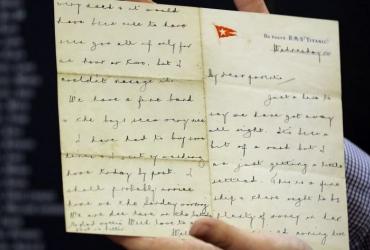 very well & it would
have been nice to have
seen you all if only for
an hour or two, but I
couldn't manage it.
We have a fine band
& the boys seem very nice.
I have had to buy some
linen &
home today by post. I
shall probably arrive
home on the Sunday morning
We are due here on the
R.M.S "TITANIC"
Wednesday
My dear parents,
Just a line to
say we have got away
all right. It's been a
bit of a rush but I
am just getting a little
settled. This is a fine
ship & there ought to be
plenty of money on her